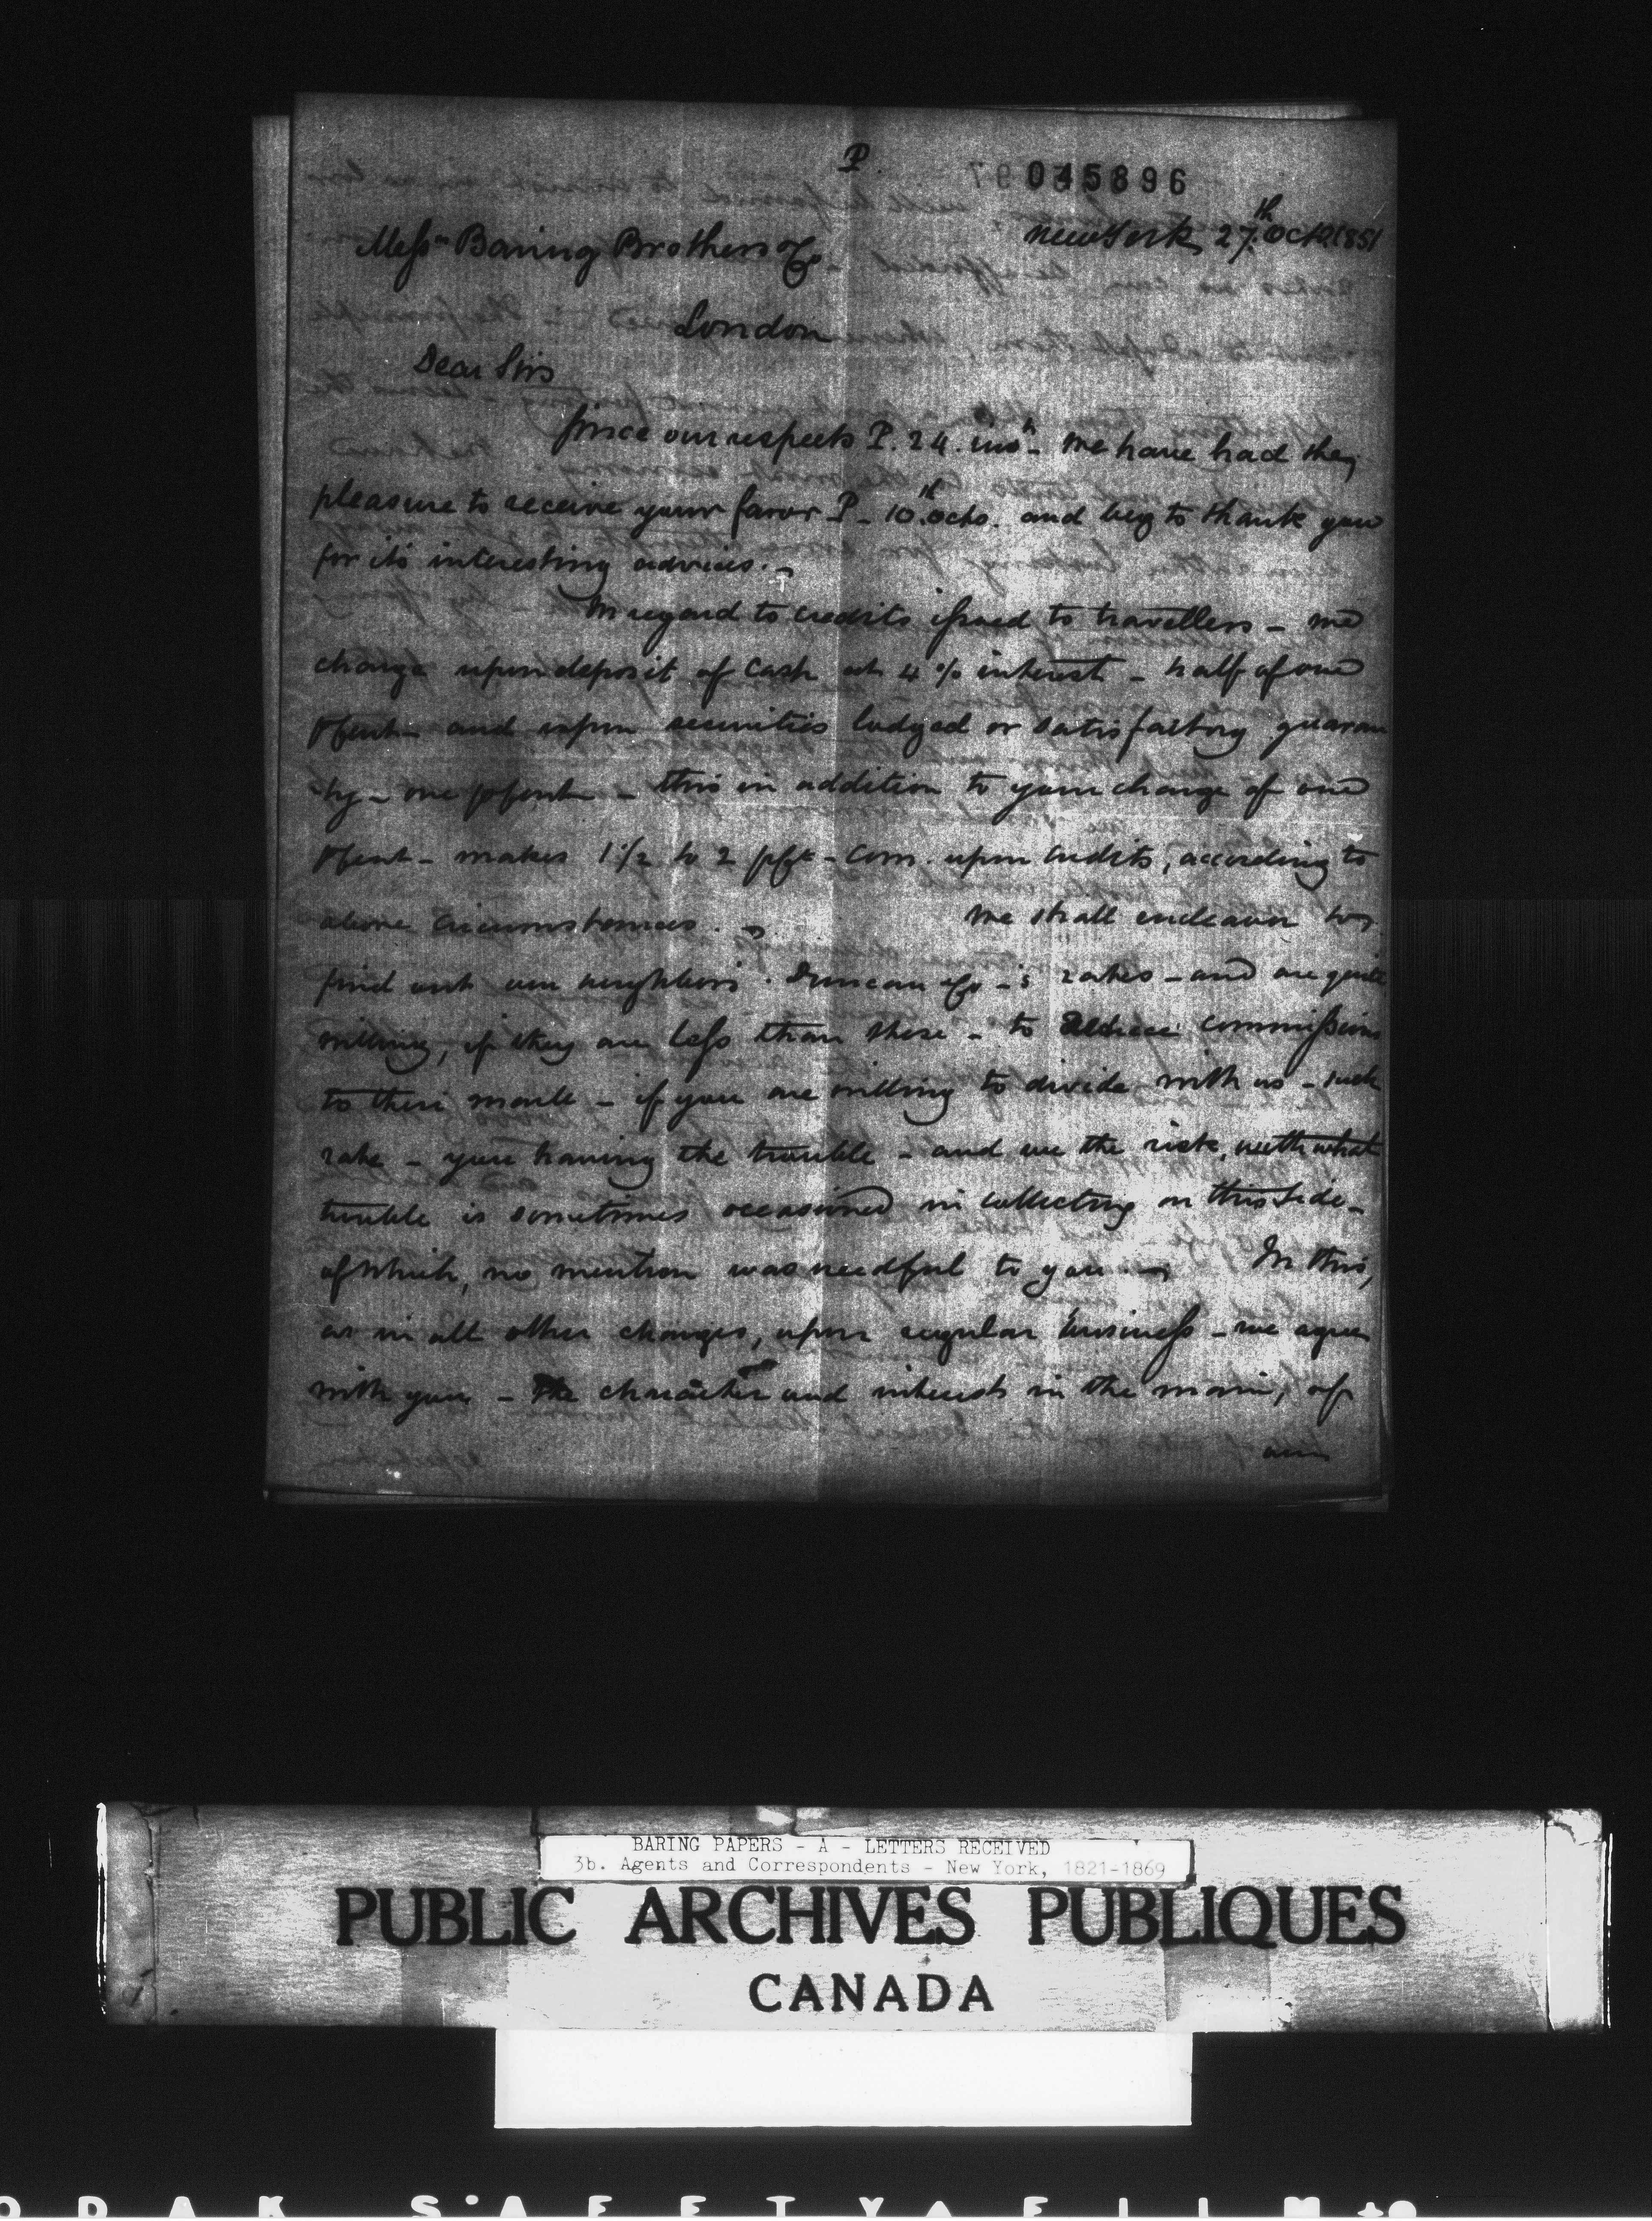 P.
045896
New York, 27th Octo 1851
Messrs Baring Brothers & Co
London
Dear Sirs
Since our respects P. 24. inst - we have had the
pleasure to receive your favor P - 10th octo. and beg to thank you
for its interesting advices. -
In regard to credits issued to travellers - we
charge upon deposit of cash at 4 % interest - half of one
P Cent - and upon securities lodged or satisfactory guaran
-ty - one p Cent - this in addition to your charge of one
P Cent - makes 1 1/2 to 2 p Ct - Com. upon credits, according to
above circumstances. - We shall endeavor to
find out our neighbors Duncan & Co -'s rates - and are quite
willing, if they are less than these - to reduce commissions
to their mark - if you are willing to divide with us - such
rate - you having the trouble - and we the risk, with what
trouble is sometimes occasioned in collecting on this side -
of which, no mention was needful to you - In this,
as in all other charges, upon regular business - we agree
with you - the character and interests in the main, of
our
BARING PAPERS - A - LETTERS RECEIVED
3b. Agents and Correspondents - New York, 1821-1869
PUBLIC ARCHIVES PUBLIQUES
CANADA
KODAK SAFETY FILM